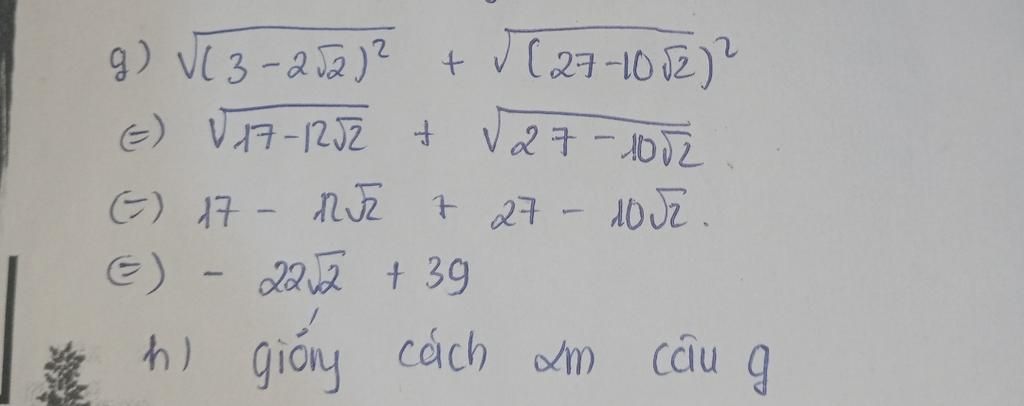 g) √(3 - 2√2)² + √(27 - 10√2)²
(=) √17 - 12√2 + √27 - 10√2
(=) 17 - 12√2 + 27 - 10√2.
(=) - 22√2 + 39
h) giống cách làm câu g